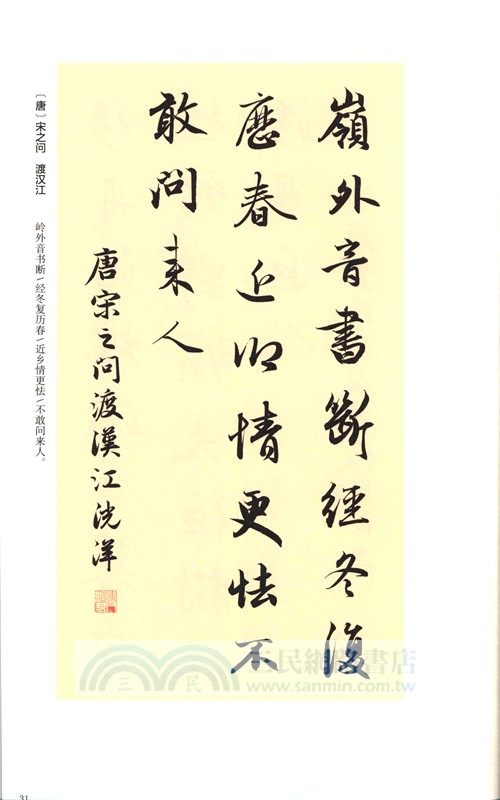 嶺外音書斷經冬復
歷春近鄉情更怯不
敢問来人
唐宋之问渡漢江洸洋
〔唐〕宋之问 渡汉江
岭外音书断/经冬复历春/近乡情更怯/不敢问来人。
三民網路書店
三民
www.sanmin.com.tw
31